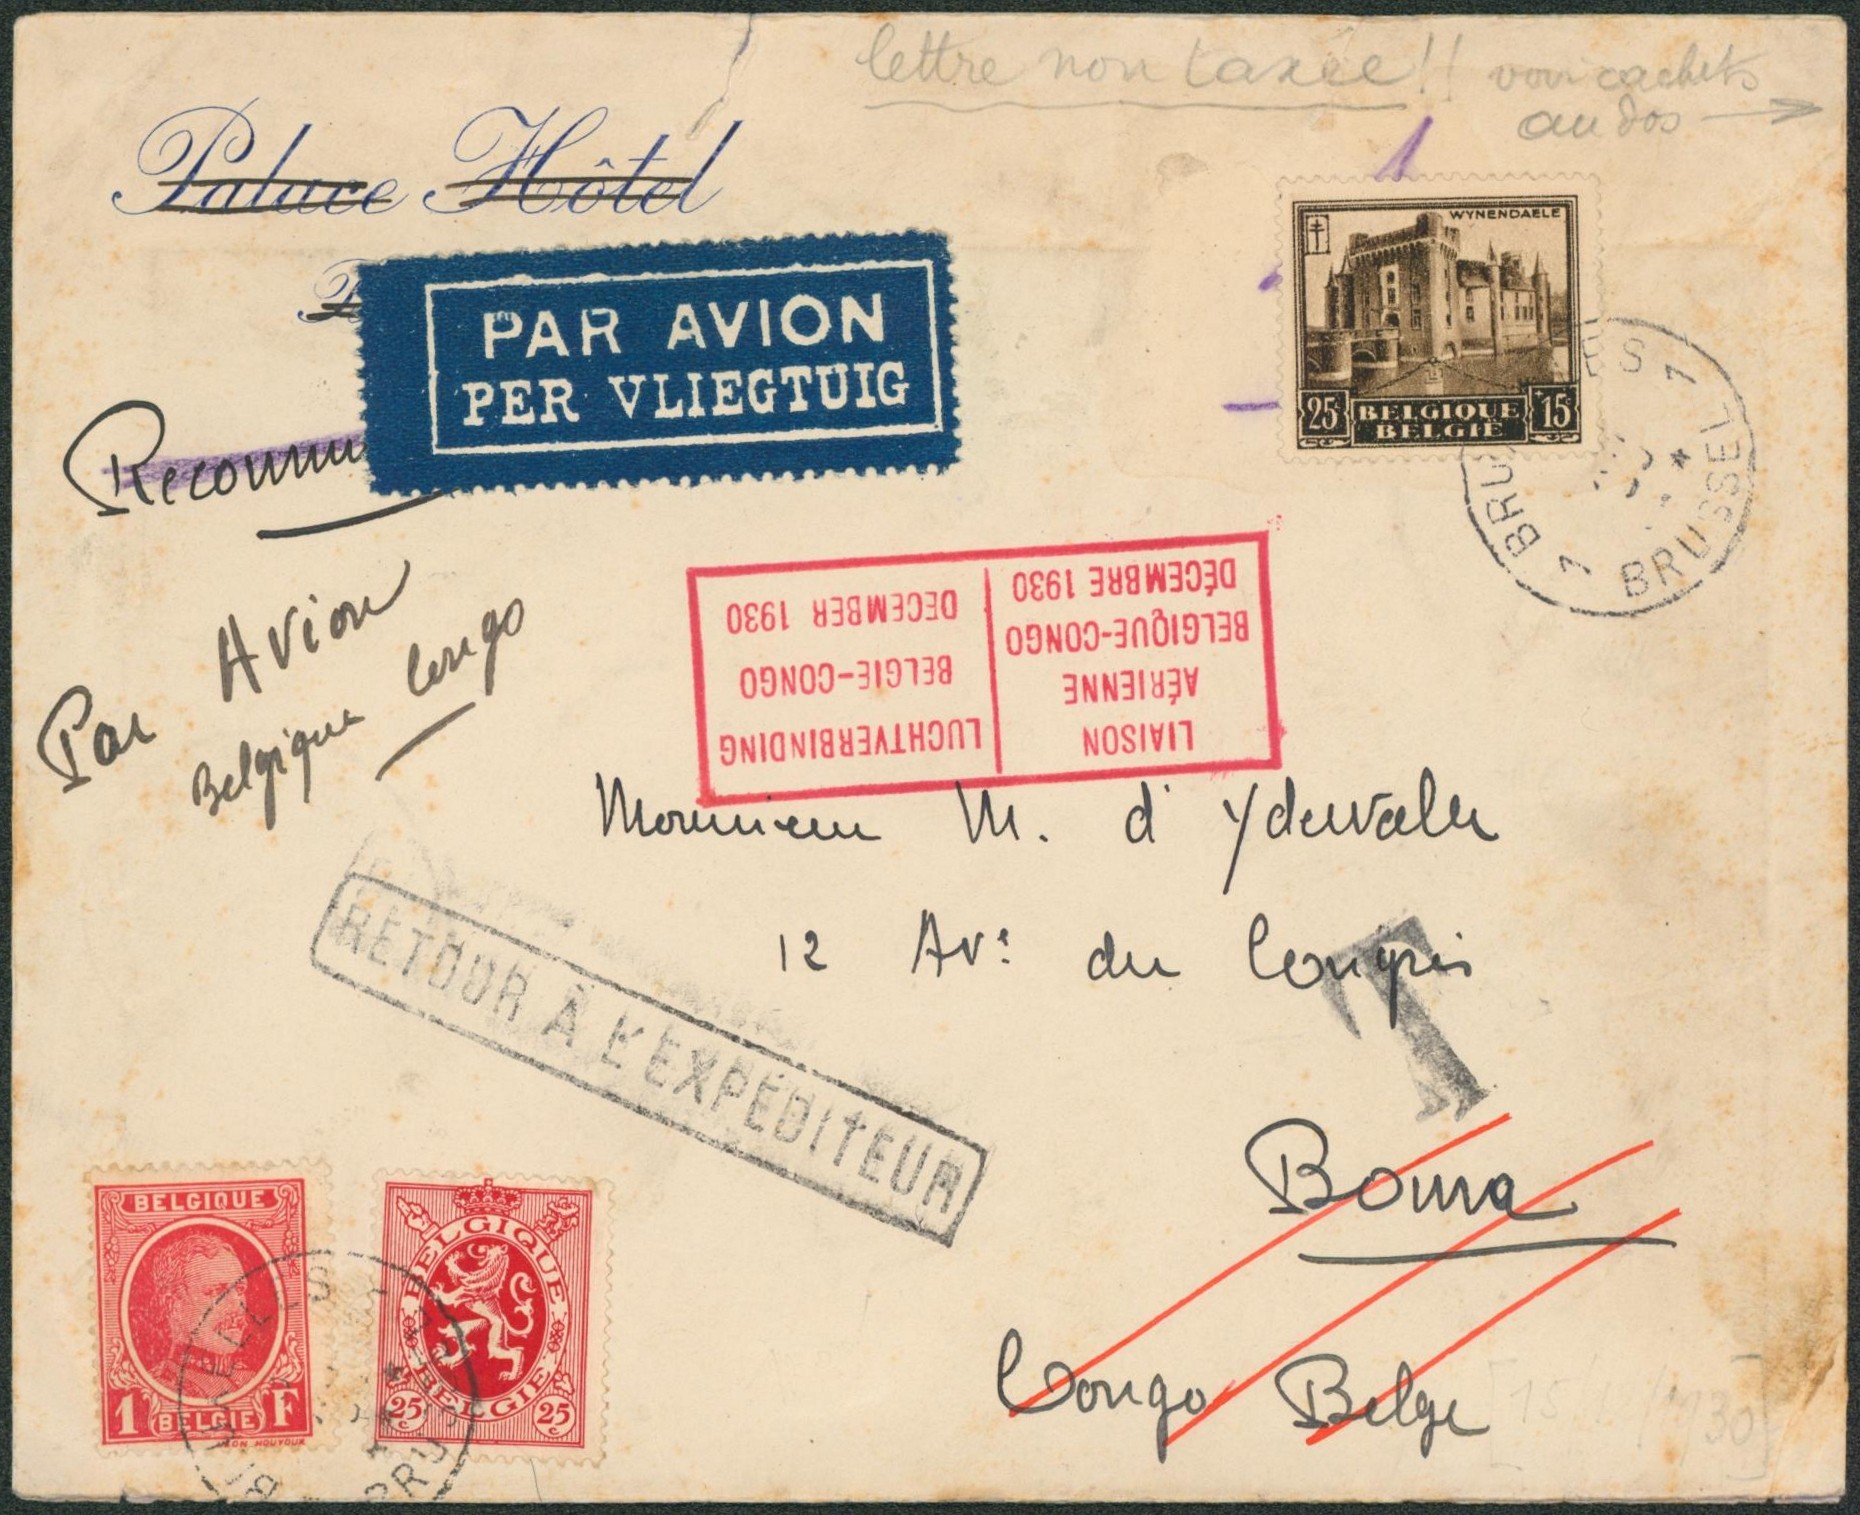 lettre non taxée !! voir cachets
au dos
Palace Hôtel
PAR AVION
PER VLIEGTUIG
WYNENDAELE
25c BELGIQUE 15c
BELGIË
BRUSSEL
Par Avion
Belgique Congo
LIAISON
AÉRIENNE
BELGIQUE-CONGO
DÉCEMBRE 1930
LUCHTVERBINDING
BELGIE-CONGO
DECEMBER 1930
Monsieur M. d'Ydewalle
12 Av. du Congrès
T
RETOUR À L'EXPÉDITEUR
Boma
Congo Belge
BELGIQUE
1 BELGIË F
BELGIQUE
25c BELGIË 25c
BRUXELLES